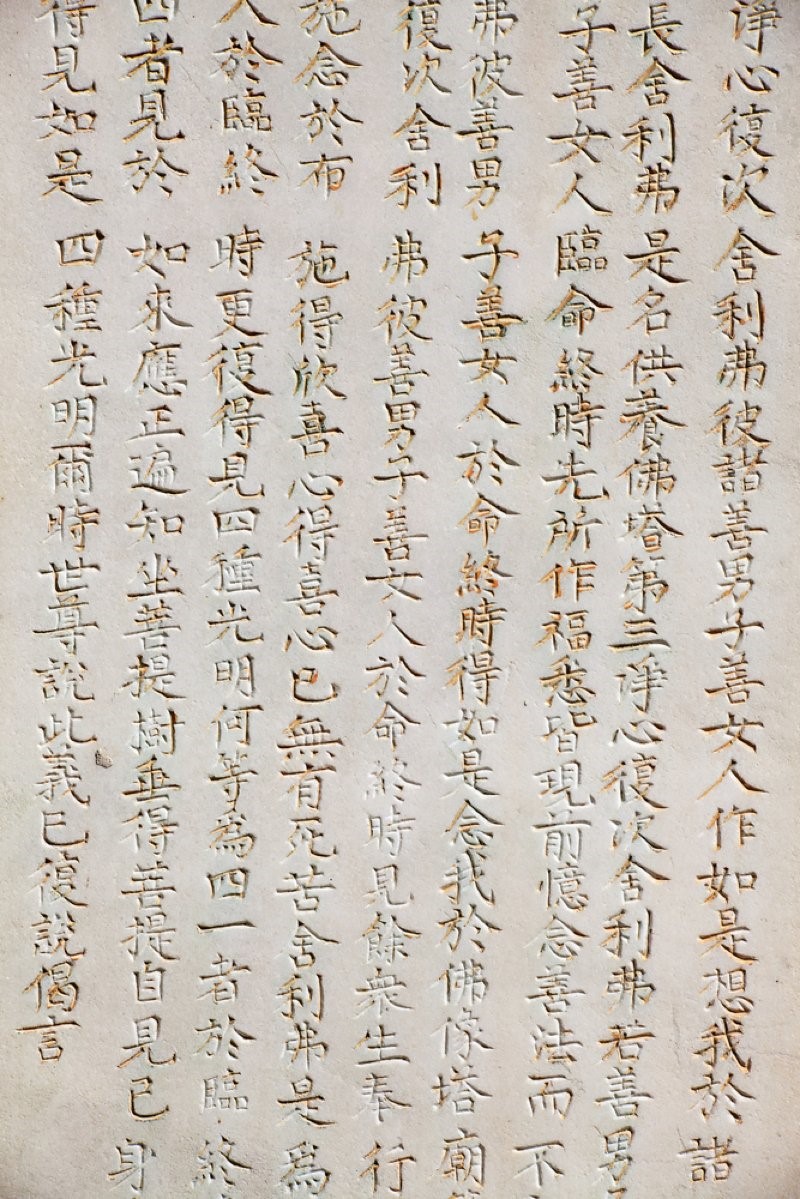 淨心復次舍利弗彼諸善男子善女人作如是想我於諸
長舍利弗是名供養佛塔第三淨心復次舍利弗若善男
子善女人臨命終時先所作福悉皆現前憶念善法而不
弗彼善男子善女人於命終時得如是念我於佛像塔廟
復次舍利弗彼善男子善女人於命終時見餘衆生奉行
施念於布施得欣喜心得喜心已無有死苦舍利弗是爲
人於臨終時更復得見四種光明何等爲四一者於臨終
四者見於如來應正遍知坐菩提樹垂得菩提自見已身
得見如是四種光明爾時世尊說此義已復說偈言